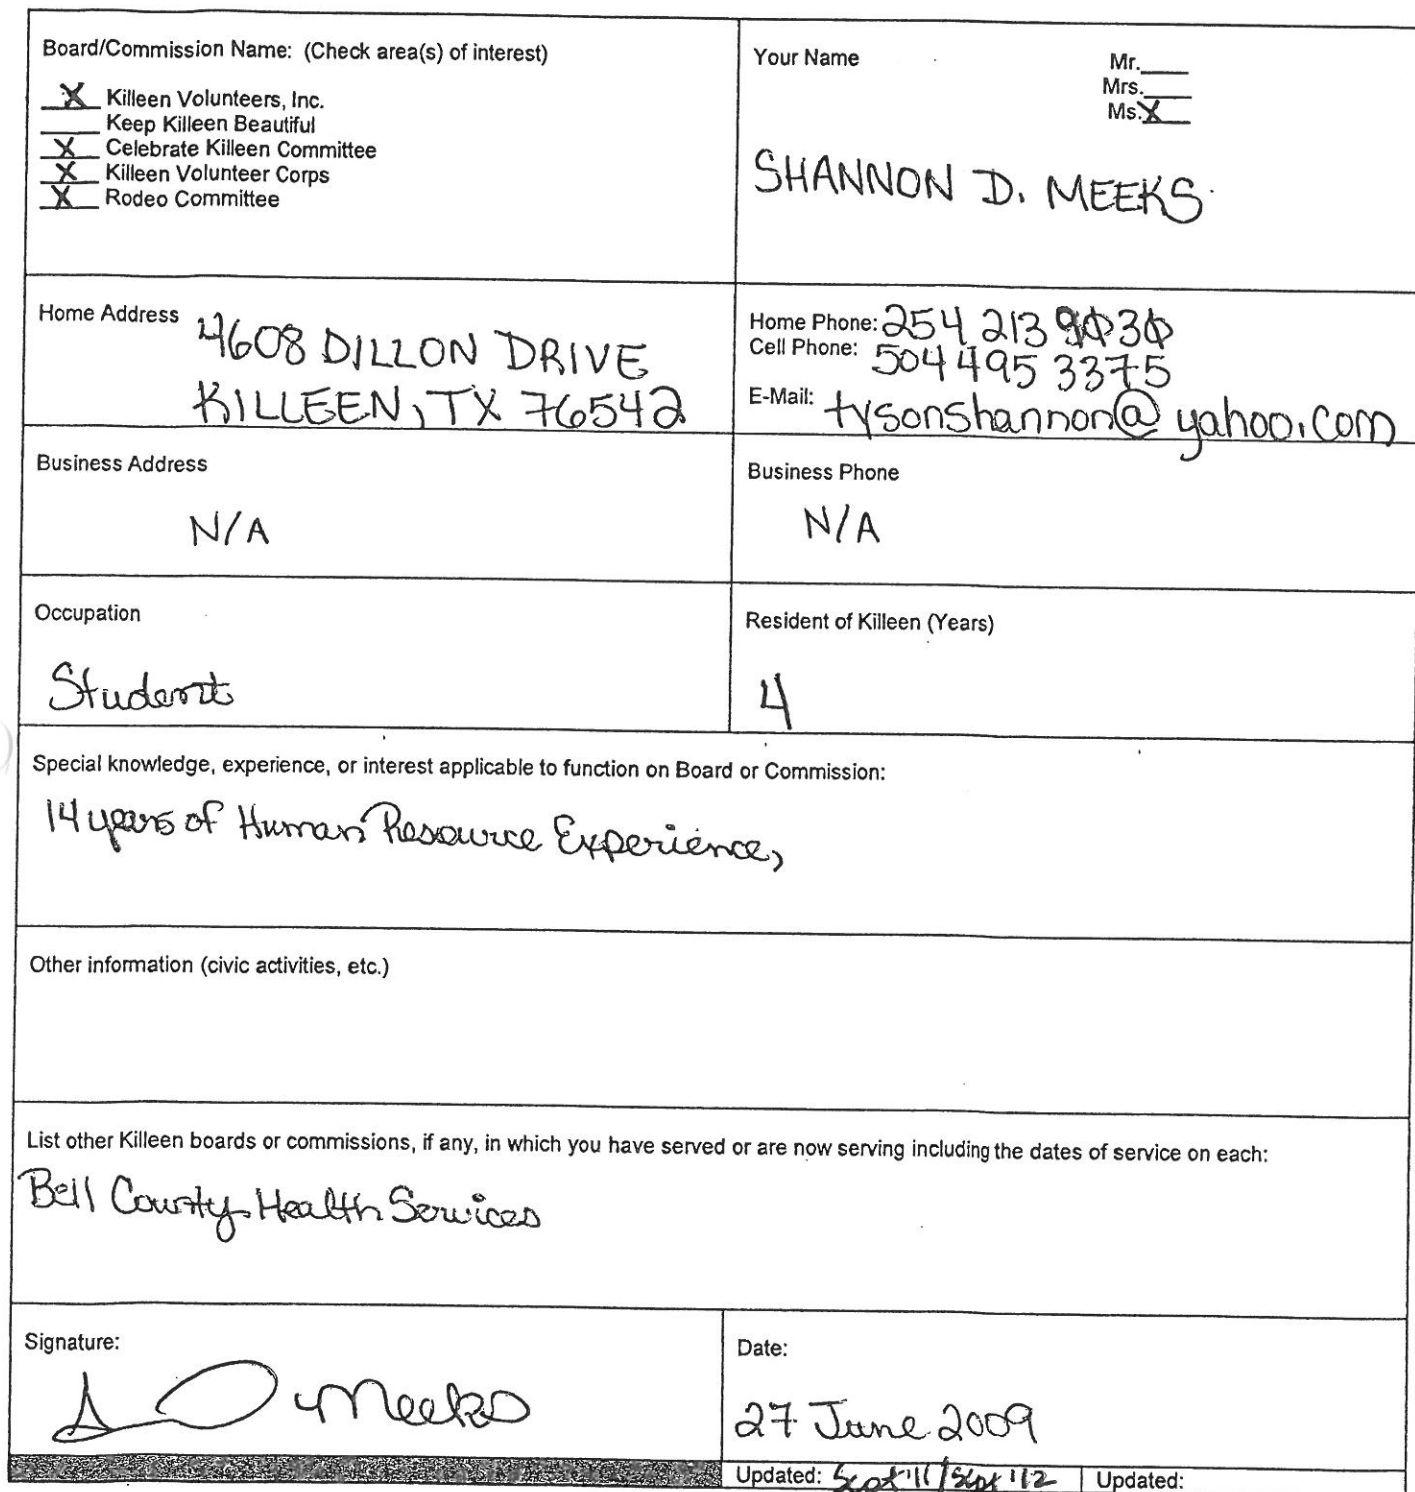 Board/Commission Name: (Check area(s) of interest)
X Killeen Volunteers, Inc.
Keep Killeen Beautiful
X Celebrate Killeen Committee
X Killeen Volunteer Corps
X Rodeo Committee
Your Name
Mr.
Mrs.
Ms. X
SHANNON D. MEEKS
Home Address
4608 DILLON DRIVE
KILLEEN, TX 76542
Home Phone: 254 213 9030
Cell Phone: 504 495 3375
E-Mail: tysonshannon@yahoo.com
Business Address
N/A
Business Phone
N/A
Occupation
Student
Resident of Killeen (Years)
4
Special knowledge, experience, or interest applicable to function on Board or Commission:
14 years of Human Resource Experience,
Other information (civic activities, etc.)
List other Killeen boards or commissions, if any, in which you have served or are now serving including the dates of service on each:
Bell County Health Services
Signature:
S D Meeks
Date:
27 June 2009
Updated: Sept '11 / Sept '12
Updated: